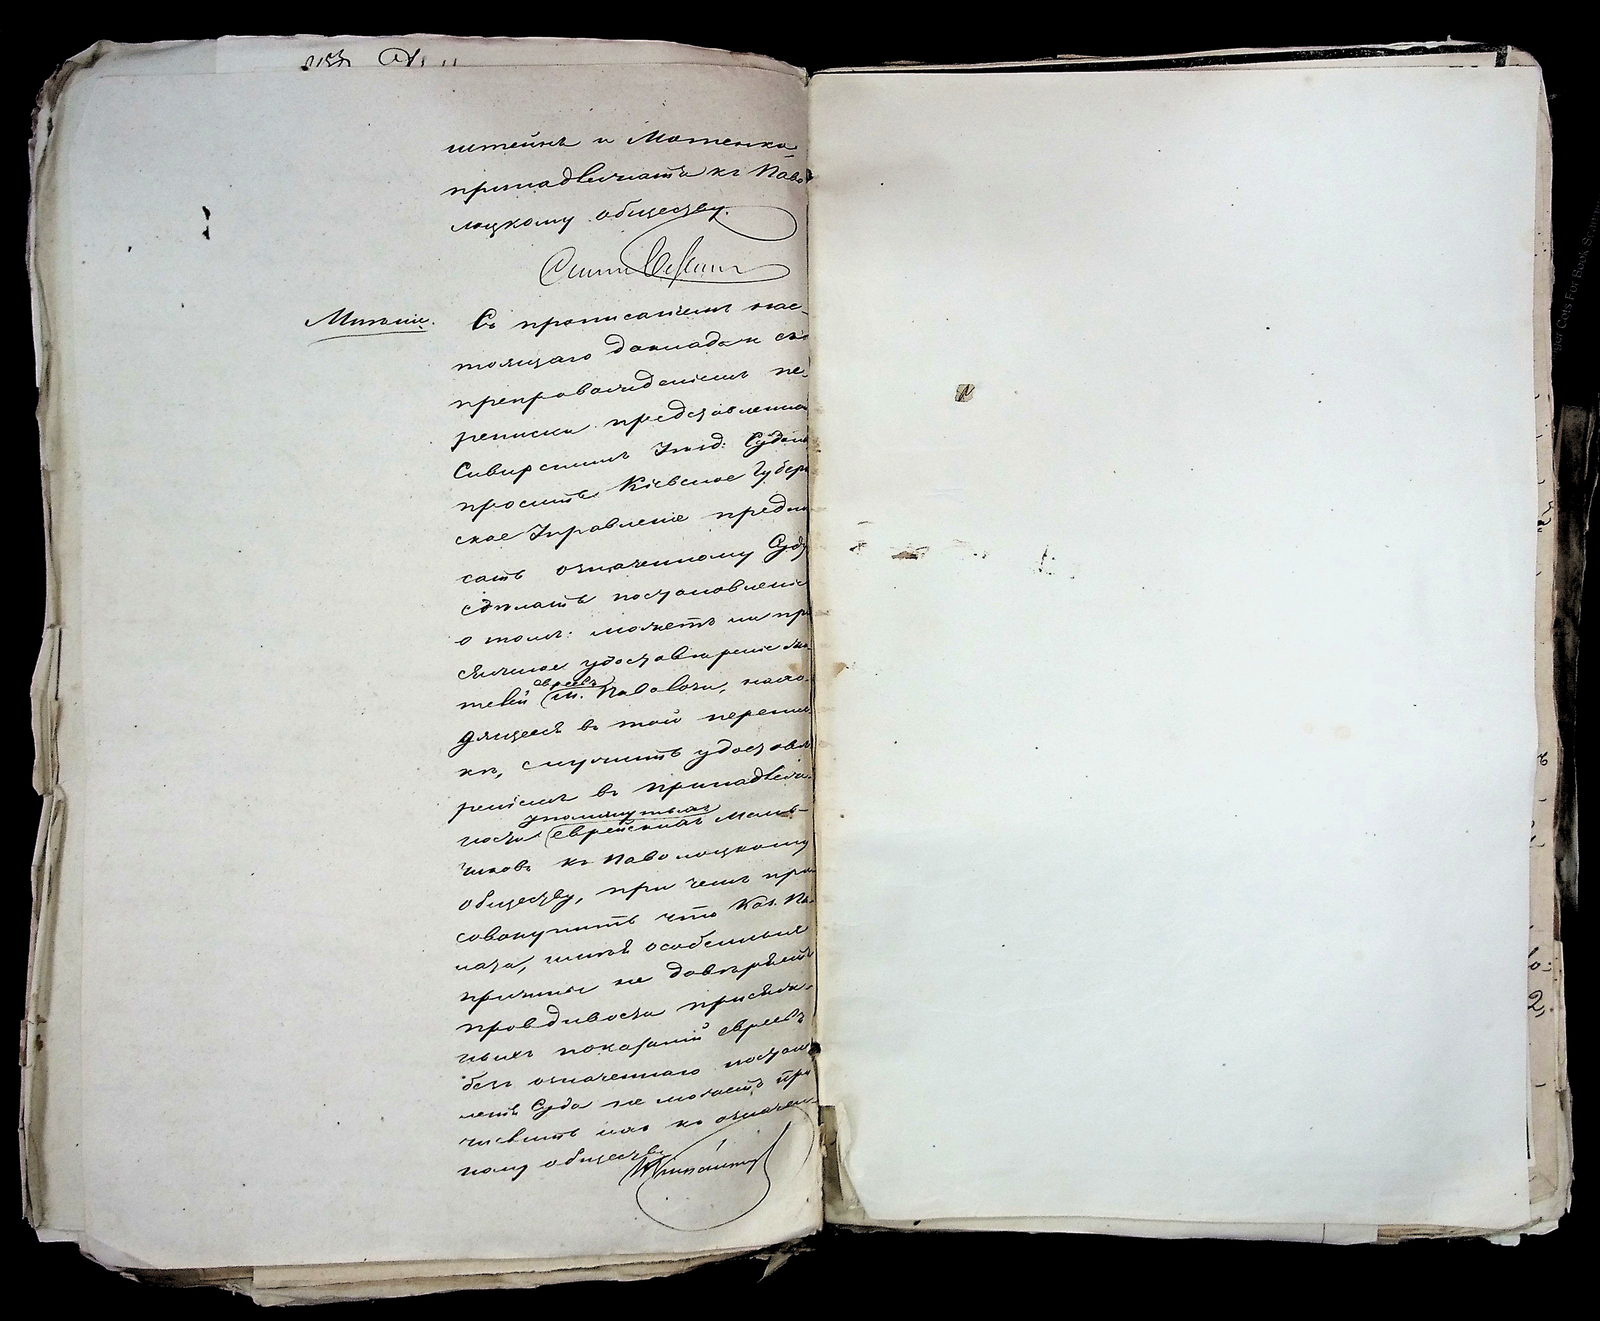 штейнъ и Мотенко
принадлежатъ къ Паво
лоцкому обществу.
Мнѣніе.
Съ прописаніемъ нас-
тоящаго доклада и съ
препровожденіемъ пе-
реписки представленной
Сквирскимъ Уѣзд: Судомъ
просить Кіевское Губерн
ское Управленіе предпи
сать означенному Суду
сдѣлать постановленіе
о томъ: можетъ ли при
сяжное удостовѣреніе жи
телей евреевъ м. Паволочи, нахо-
дящееся въ той перепис
кѣ, служить удостовѣ
реніемъ въ принадлеж
ности упомянутыхъ еврейскихъ маль-
чиковъ къ Паволоцкому
обществу, при чемъ при
совокупить что Каз. Па-
лата, имѣя особенныя
причины не довѣрять
правдивости присяж-
ныхъ показаній евреевъ
безъ означеннаго постано
Суда не можетъ при
числить ихъ къ означен-
ному обществу.